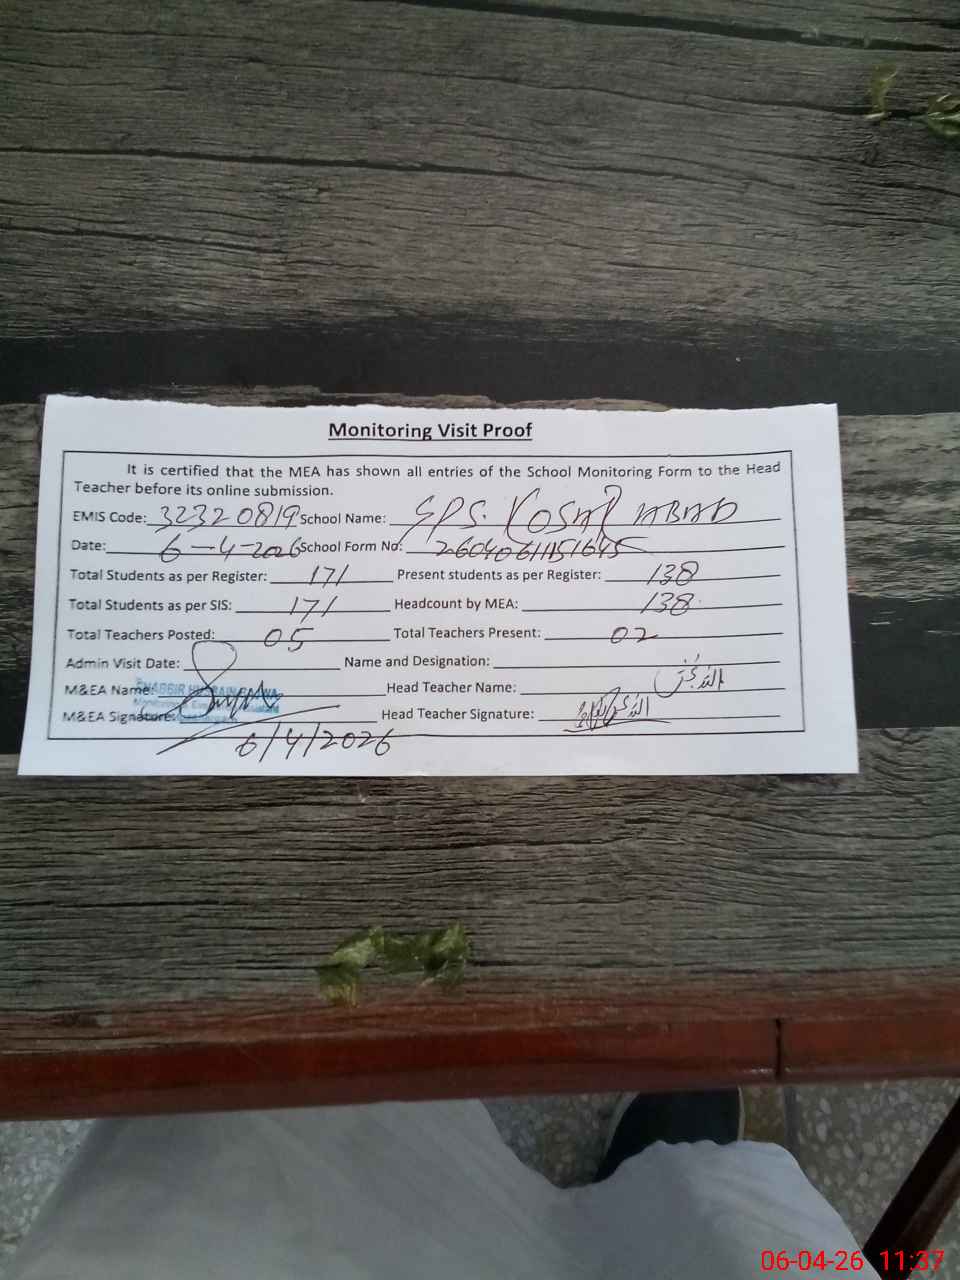 Monitoring Visit Proof
It is certified that the MEA has shown all entries of the School Monitoring Form to the Head
Teacher before its online submission.
EMIS Code: 32320819 School Name: GPS. KOSAR ABAD
Date: 6-4-2026 School Form No: 26040611151645
Total Students as per Register: 171 Present students as per Register: 138
Total Students as per SIS: 171 Headcount by MEA: 138
Total Teachers Posted: 05 Total Teachers Present: 02
Admin Visit Date: Name and Designation:
M&EA Name: Head Teacher Name: اللہ بخش
M&EA Signature: Head Teacher Signature: اللہ بخش
6/4/2026
06-04-26 11:37